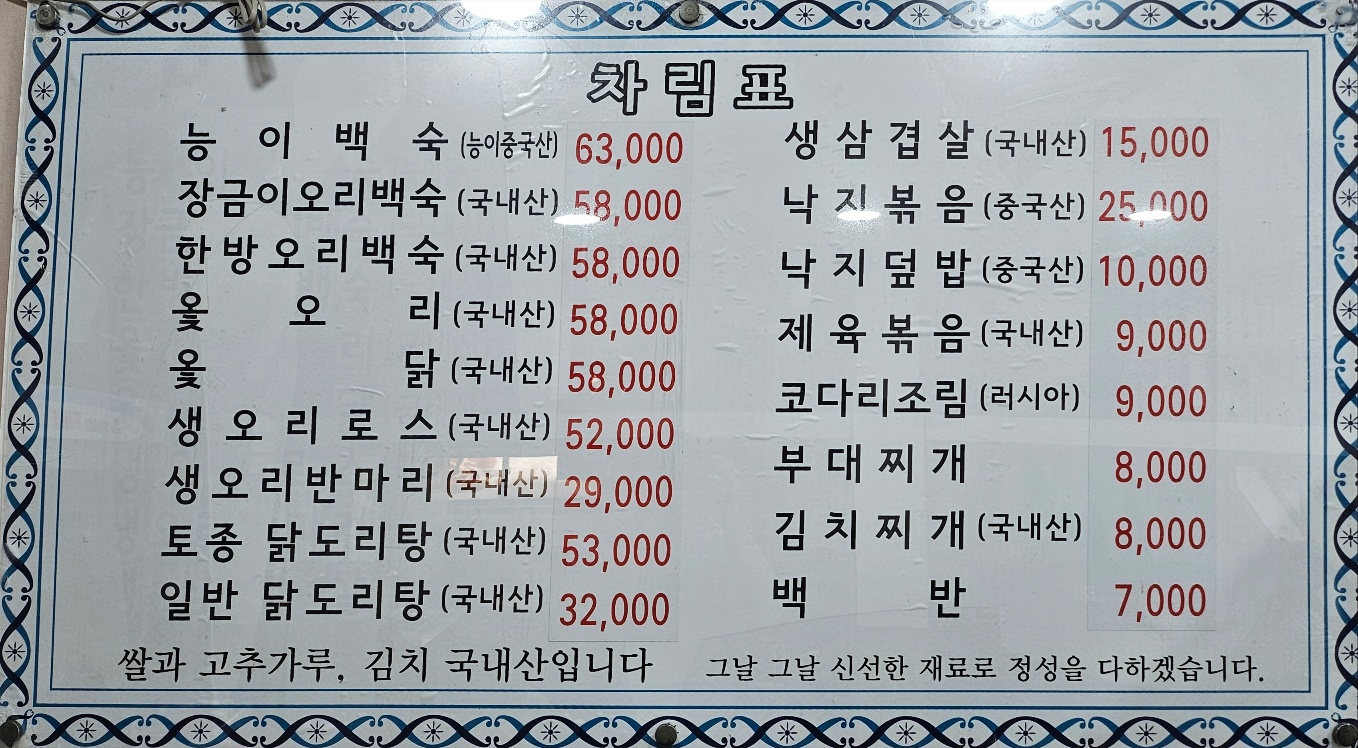 차림표
능이백숙 (능이중국산) 63,000
장금이오리백숙 (국내산) 58,000
한방오리백숙 (국내산) 58,000
옻오리 (국내산) 58,000
옻닭 (국내산) 58,000
생오리로스 (국내산) 52,000
생오리반마리 (국내산) 29,000
토종 닭도리탕 (국내산) 53,000
일반 닭도리탕 (국내산) 32,000
쌀과 고추가루, 김치 국내산입니다
생삼겹살 (국내산) 15,000
낙지볶음 (중국산) 25,000
낙지덮밥 (중국산) 10,000
제육볶음 (국내산) 9,000
코다리조림 (러시아) 9,000
부대찌개 8,000
김치찌개 (국내산) 8,000
백반 7,000
그날 그날 신선한 재료로 정성을 다하겠습니다.